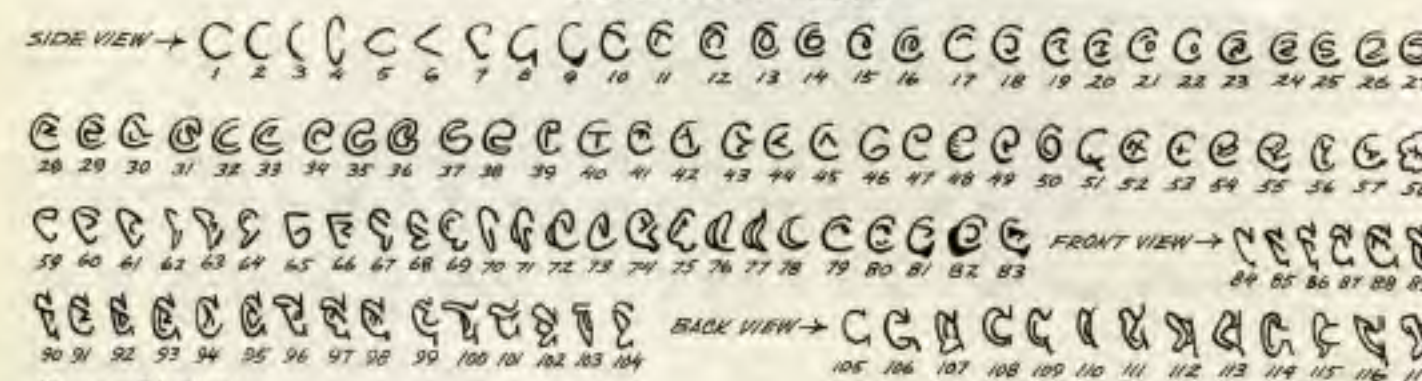 SIDE VIEW → 1 2 3 4 5 6 7 8 9 10 11 12 13 14 15 16 17 18 19 20 21 22 23 24 25 26
28 29 30 31 32 33 34 35 36 37 38 39 40 41 42 43 44 45 46 47 48 49 50 51 52 53 54 55 56 57
59 60 61 62 63 64 65 66 67 68 69 70 71 72 73 74 75 76 77 78 79 80 81 82 83 FRONT VIEW → 84 85 86 87 88
90 91 92 93 94 95 96 97 98 99 100 101 102 103 104 BACK VIEW → 105 106 107 108 109 110 111 112 113 114 115 116